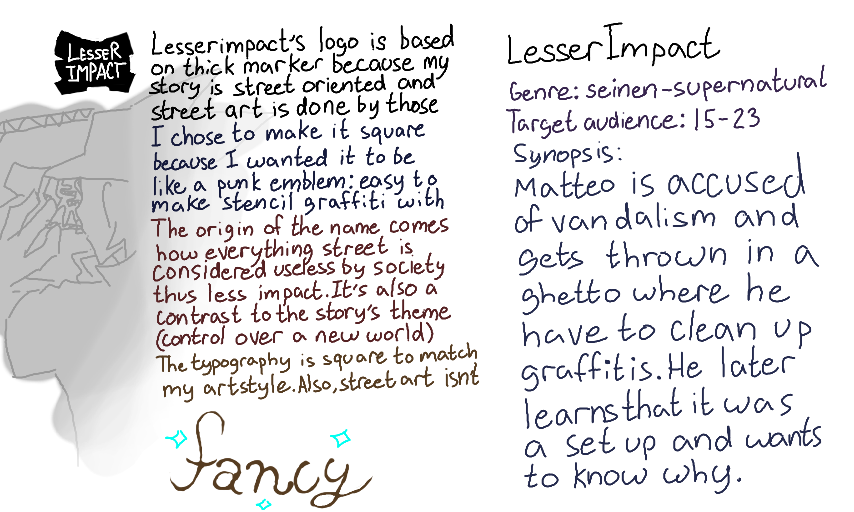 LESSER
IMPACT
Lesserimpact's logo is based
on thick marker because my
story is street oriented and
street art is done by those
I chose to make it square
because I wanted it to be
like a punk emblem: easy to
make stencil graffiti with
The origin of the name comes
how everything street is
considered useless by society
thus less impact. It's also a
contrast to the story's theme
(control over a new world)
The typography is square to match
my artstyle. Also, street art isnt
fancy
LesserImpact
Genre: seinen-supernatural
Target audience: 15-23
Synopsis:
Matteo is accused
of vandalism and
gets thrown in a
ghetto where he
have to clean up
graffitis. He later
learns that it was
a set up and wants
to know why.